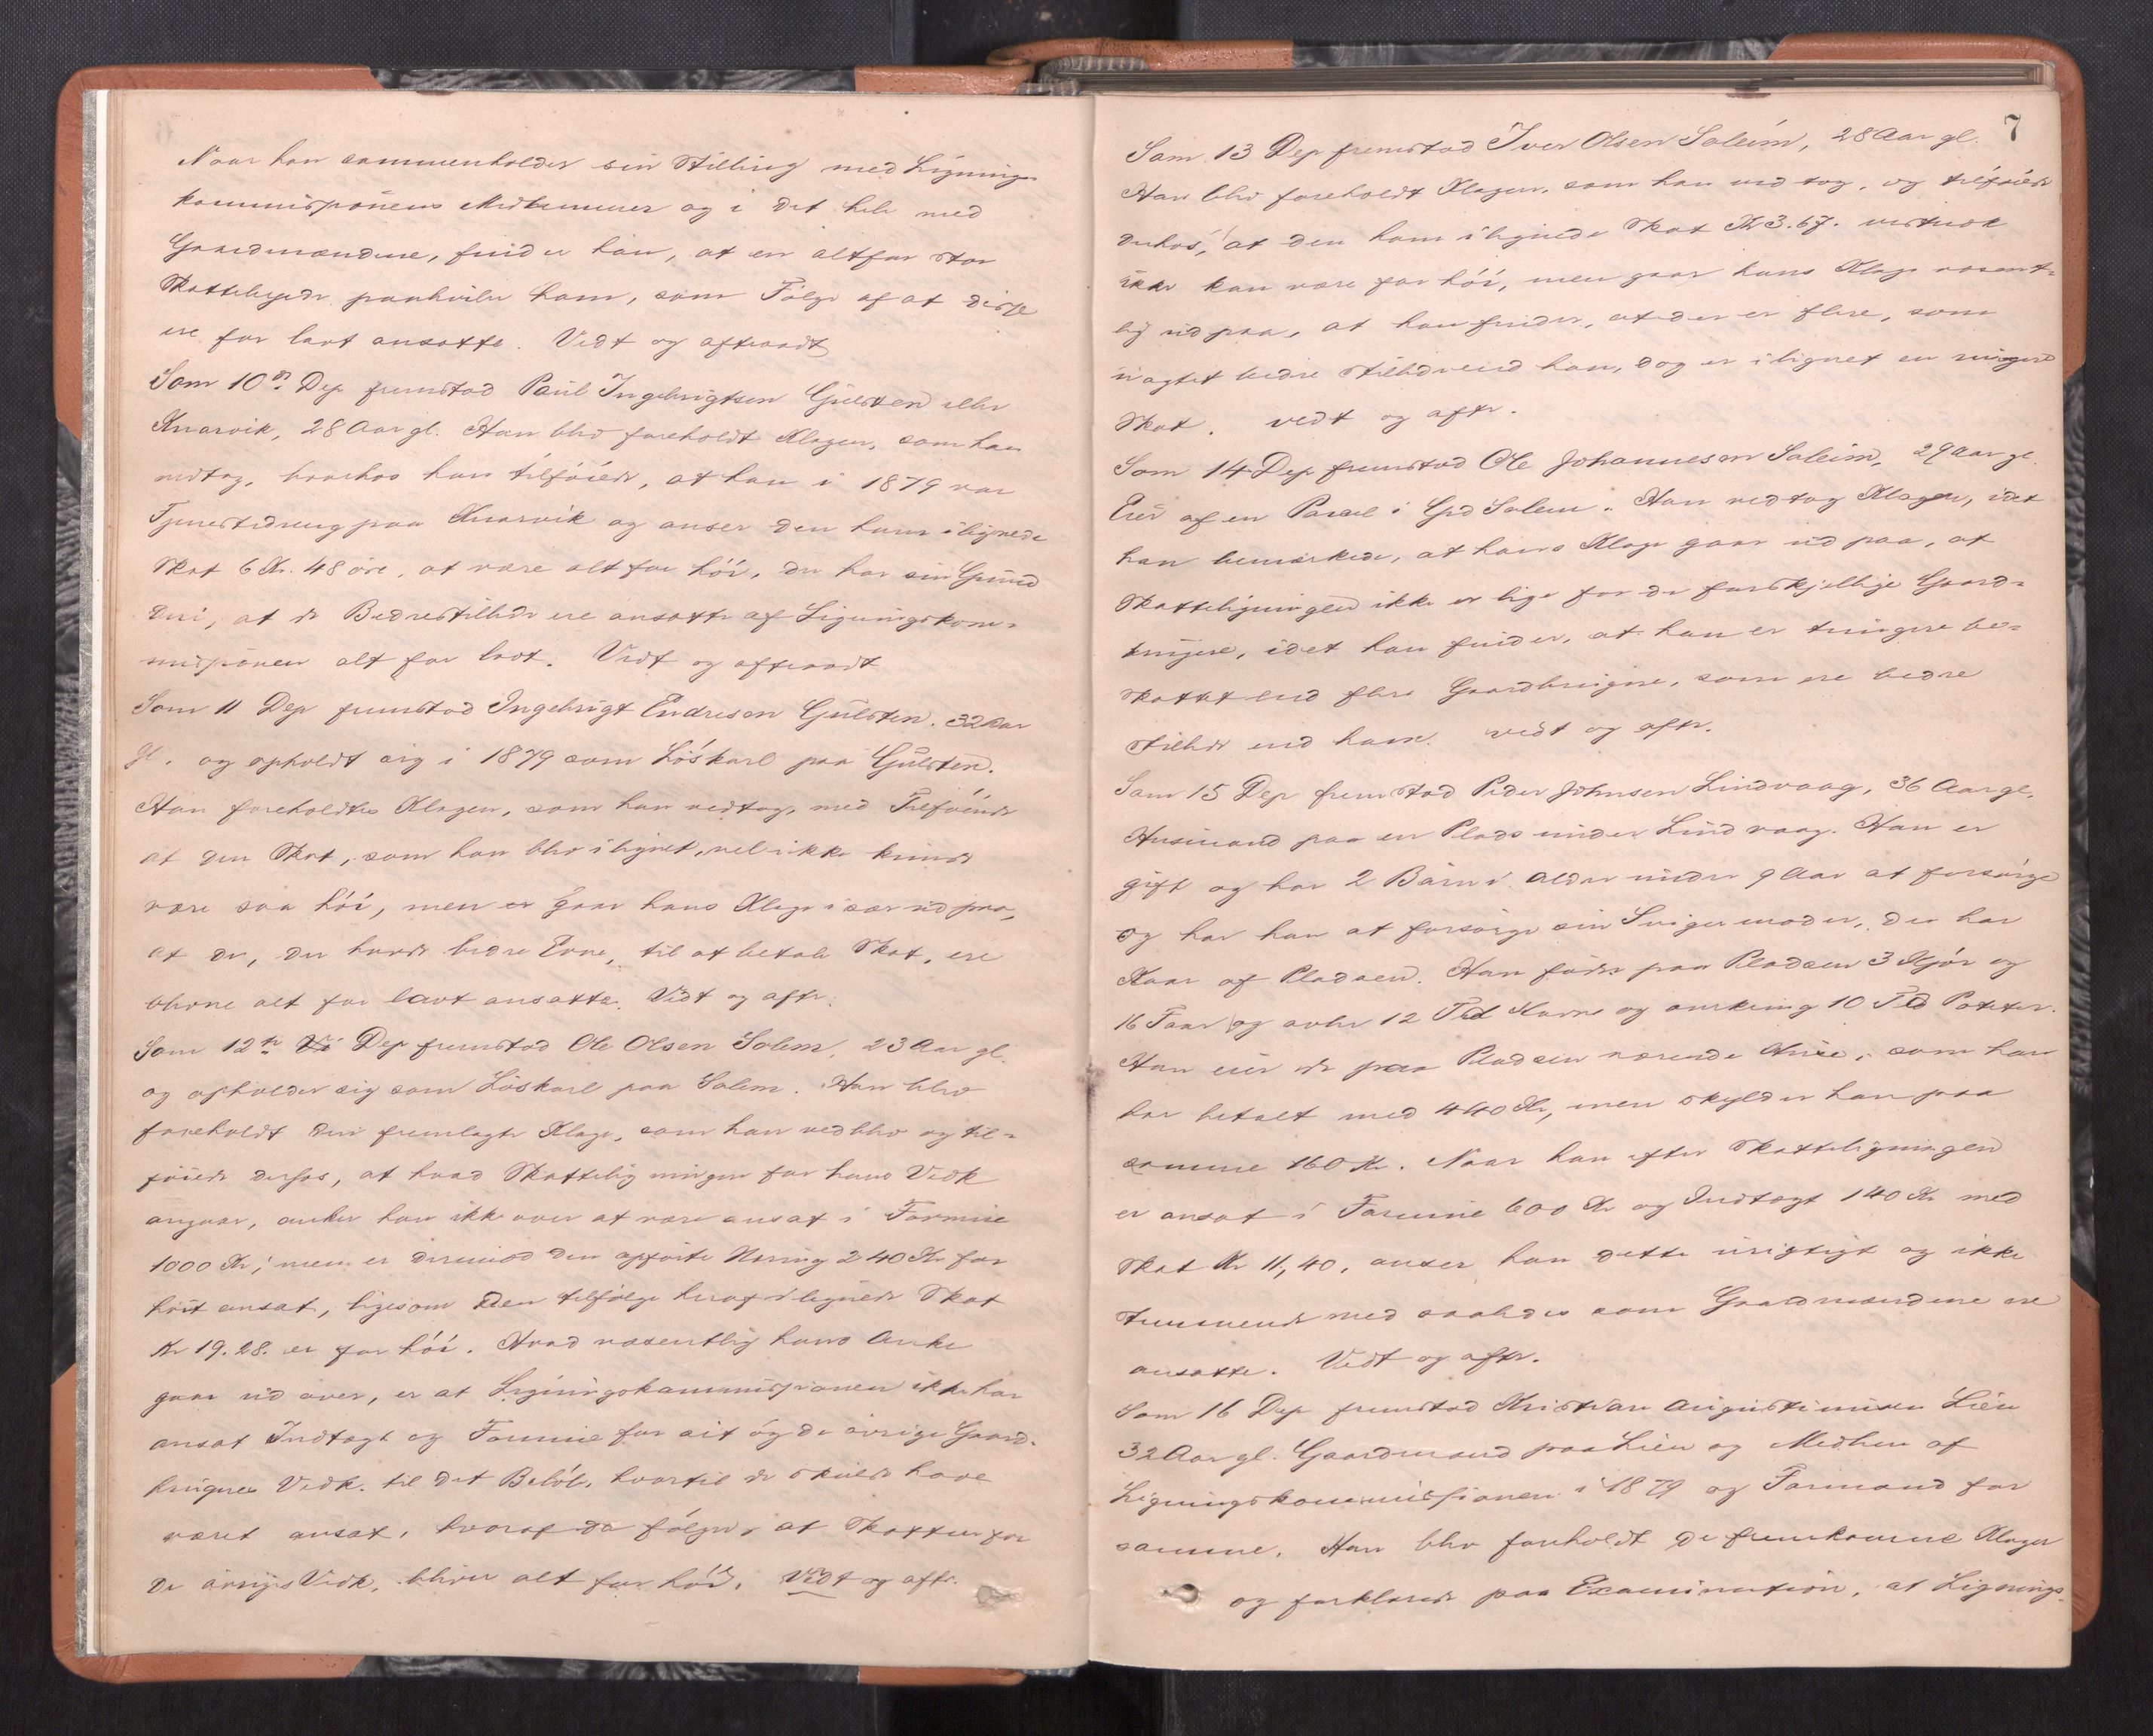 Naar han sammenholder sin Stilling med Lignings-
kommissionens Medlemmer og i det hele med
Gaardmændene, finder han, at en altfor stor
Skattebyrde paahviler ham, som Følge af at disse
ere for lavt ansatte. Vedt og aftraadt
Som 10de Dep fremstod Paul Ingebrigtsen Gulsten eller
Knarvik, 28 Aar gl. Han blev foreholdt Klagen, som han
vedtog, hvorhos han tilføiede, at han i 1879 var
Tjenestedreng paa Knarvik og anser den ham ilignede
Skat 6 Kr. 48 öre, at være alt for höi, der har sin Grund
deri, at de Bedrestillede ere ansatte af Ligningskom-
missionen alt for lavt. Vedt og aftraadt
Som 11 Dep fremstod Ingebrigt Endresen Gulsten. 32 Aar
gl. og opholdt sig i 1879 som Löskarl paa Gulsten.
Han foreholdtes Klagen, som han vedtog, med Tilföiende
at den Skat, som han blev ilignet, vel ikke kunde
være saa höi, men er gaar hans Klage især ud paa,
at de, der havde bedre Evne, til at betale Skat, ere
blevne alt for lavt ansatte. Vedt og aftr.
Som 12te Vi Dep fremstod Ole Olsen Solem, 23 Aar gl.
og opholder sig som Löskarl paa Solem. Han blev
foreholdt den fremlagte Klage, som han vedblev og til-
föiede derhos, at hvad Skatteligningen for hans Vedk
angaar, anker han ikke over at være ansat i Formue
1000 Kr; men er derimod den opförte Næring 240 Kr for
höit ansat, ligesom den tilfölge heraf ilignede Skat
Kr 19.28. er for höi. Hvad væsentlig hans Anke
gaar ud over, er at Ligningskommissionen ikke har
ansat Indtægt og Formue for sit og de övrige Gaard-
brugeres Vedk. til det Belöb, hvortil de skulde have
været ansat, hvoraf da fölger, at Skatten for
de övriges Vedk, bliver alt for höi. Vedt og aftr.
7
Som 13 Dep fremstod Iver Olsen Soleim, 28 Aar gl.
Han blev foreholdt Klagen, som han vedtog, og tilföiede
derhos, at den ham ilignede Skat Kr 3.67. vistnok
ikke kan være for höi, men gaar hans Klage væsent-
lig ud paa, at han finder, at der er flere, som
uagtet bedre stillede end han, dog er ilignet en ringere
Skat. vedt og aftr.
Som 14 Dep fremstod Ole Johannesen Soleim, 29 Aar gl.
Eier af en Parcel i Grd Solem. Han vedtog Klagen, idet
han bemærkede, at hans Klage gaar ud paa, at
Skatteligningen ikke er lige for de forskjellige Gaard-
brugere, idet han finder, at han er tungere be-
skattet end flere Gaardbrugere, som ere bedre
stillede end ham. vedt og aftr.
Som 15 Dep fremstod Peder Johnsen Lindvaag, 36 Aar gl,
Husmand paa en Plads under Lindvaag. Han er
gift og har 2 Børn i Alder under 9 Aar at forsörge
og har han at forsörge sin Svigermoder, der har
Kaar af Pladsen. Han föder paa Pladsen 3 Kjör og
16 Faar og avler 12 Td Korn og omkring 10 Td Poteter.
Han eier de paa Pladsen værende Huse, som han
har betalt med 440 Kr, men skylder han paa
samme 160 Kr. Naar han efter Skatteligningen
er ansat i Formue 600 Kr og Indtægt 140 Kr med
Skat Kr 11,40, anser han dette urigtigt og ikke
stemmende med saaledes som Gaardmændene ere
ansatte. Vedt og aftr.
Som 16 Dep fremstod Kristian Augustinusen Lien
32 Aar gl. Gaardmand paa Lien og Medlem af
Ligningskommissionen i 1879 og Formand for
samme. Han blev foreholdt de fremkomne Klager
og forklarede paa Examination, at Lignings-